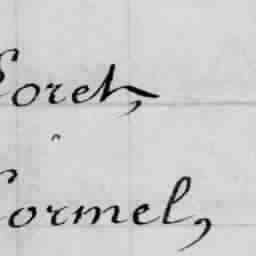 oret,
ormel,